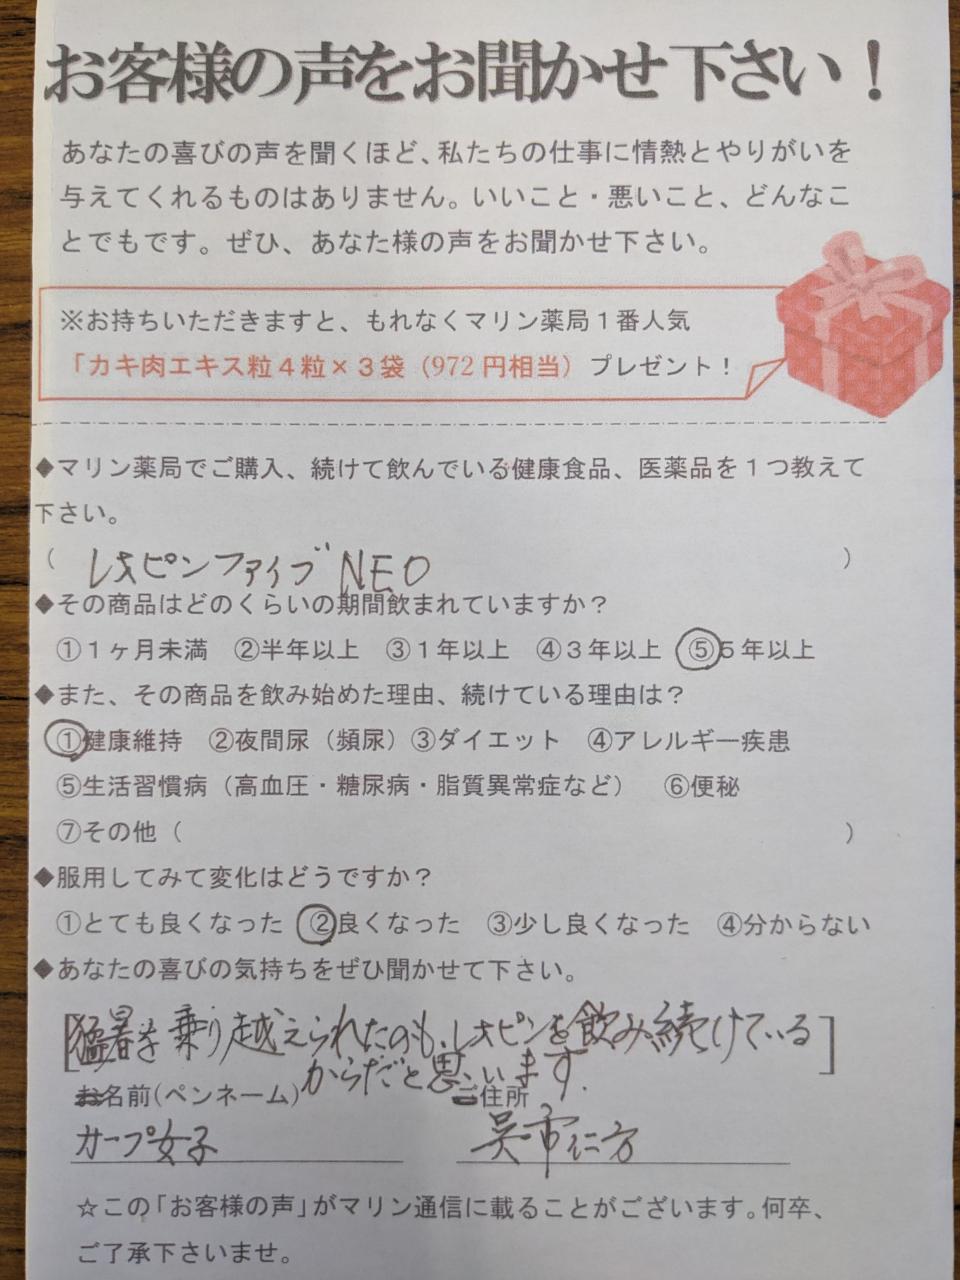 お客様の声をお聞かせ下さい！
あなたの喜びの声を聞くほど、私たちの仕事に情熱とやりがいを
与えてくれるものはありません。いいこと・悪いこと、どんなこ
とでもです。ぜひ、あなた様の声をお聞かせ下さい。
※お持ちいただきますと、もれなくマリン薬局１番人気
「カキ肉エキス粒４粒×３袋（972 円相当） プレゼント！
◆マリン薬局でご購入、続けて飲んでいる健康食品、医薬品を１つ教えて
下さい。
（ レオピンファイブ NEO ）
◆その商品はどのくらいの期間飲まれていますか？
①１ヶ月未満 ②半年以上 ③１年以上 ④３年以上 ⑤５年以上
◆また、その商品を飲み始めた理由、続けている理由は？
①健康維持 ②夜間尿（頻尿）③ダイエット ④アレルギー疾患
⑤生活習慣病（高血圧・糖尿病・脂質異常症など） ⑥便秘
⑦その他（ ）
◆服用してみて変化はどうですか？
①とても良くなった ②良くなった ③少し良くなった ④分からない
◆あなたの喜びの気持ちをぜひ聞かせて下さい。
[猛暑を乗り越えられたのも、レオピンを飲み続けている]
からだと思います.
お名前(ペンネーム) ご住所
カープ女子 呉市仁方
☆この「お客様の声」がマリン通信に載ることがございます。何卒、
ご了承下さいませ。